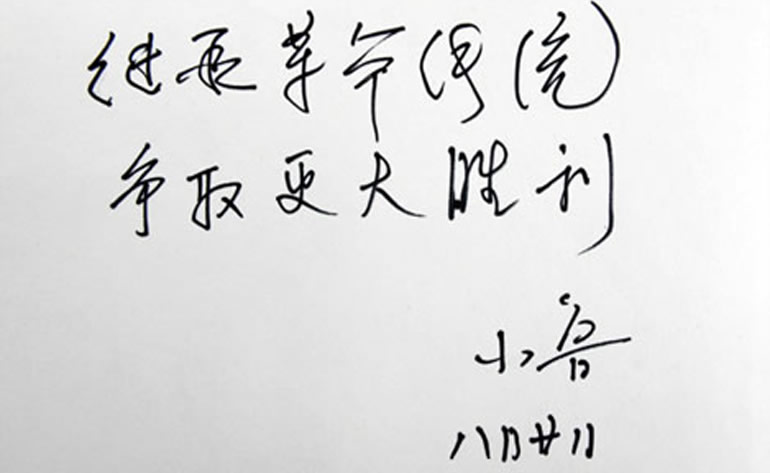 继承革命传统
争取更大胜利
小鲁
八月廿日